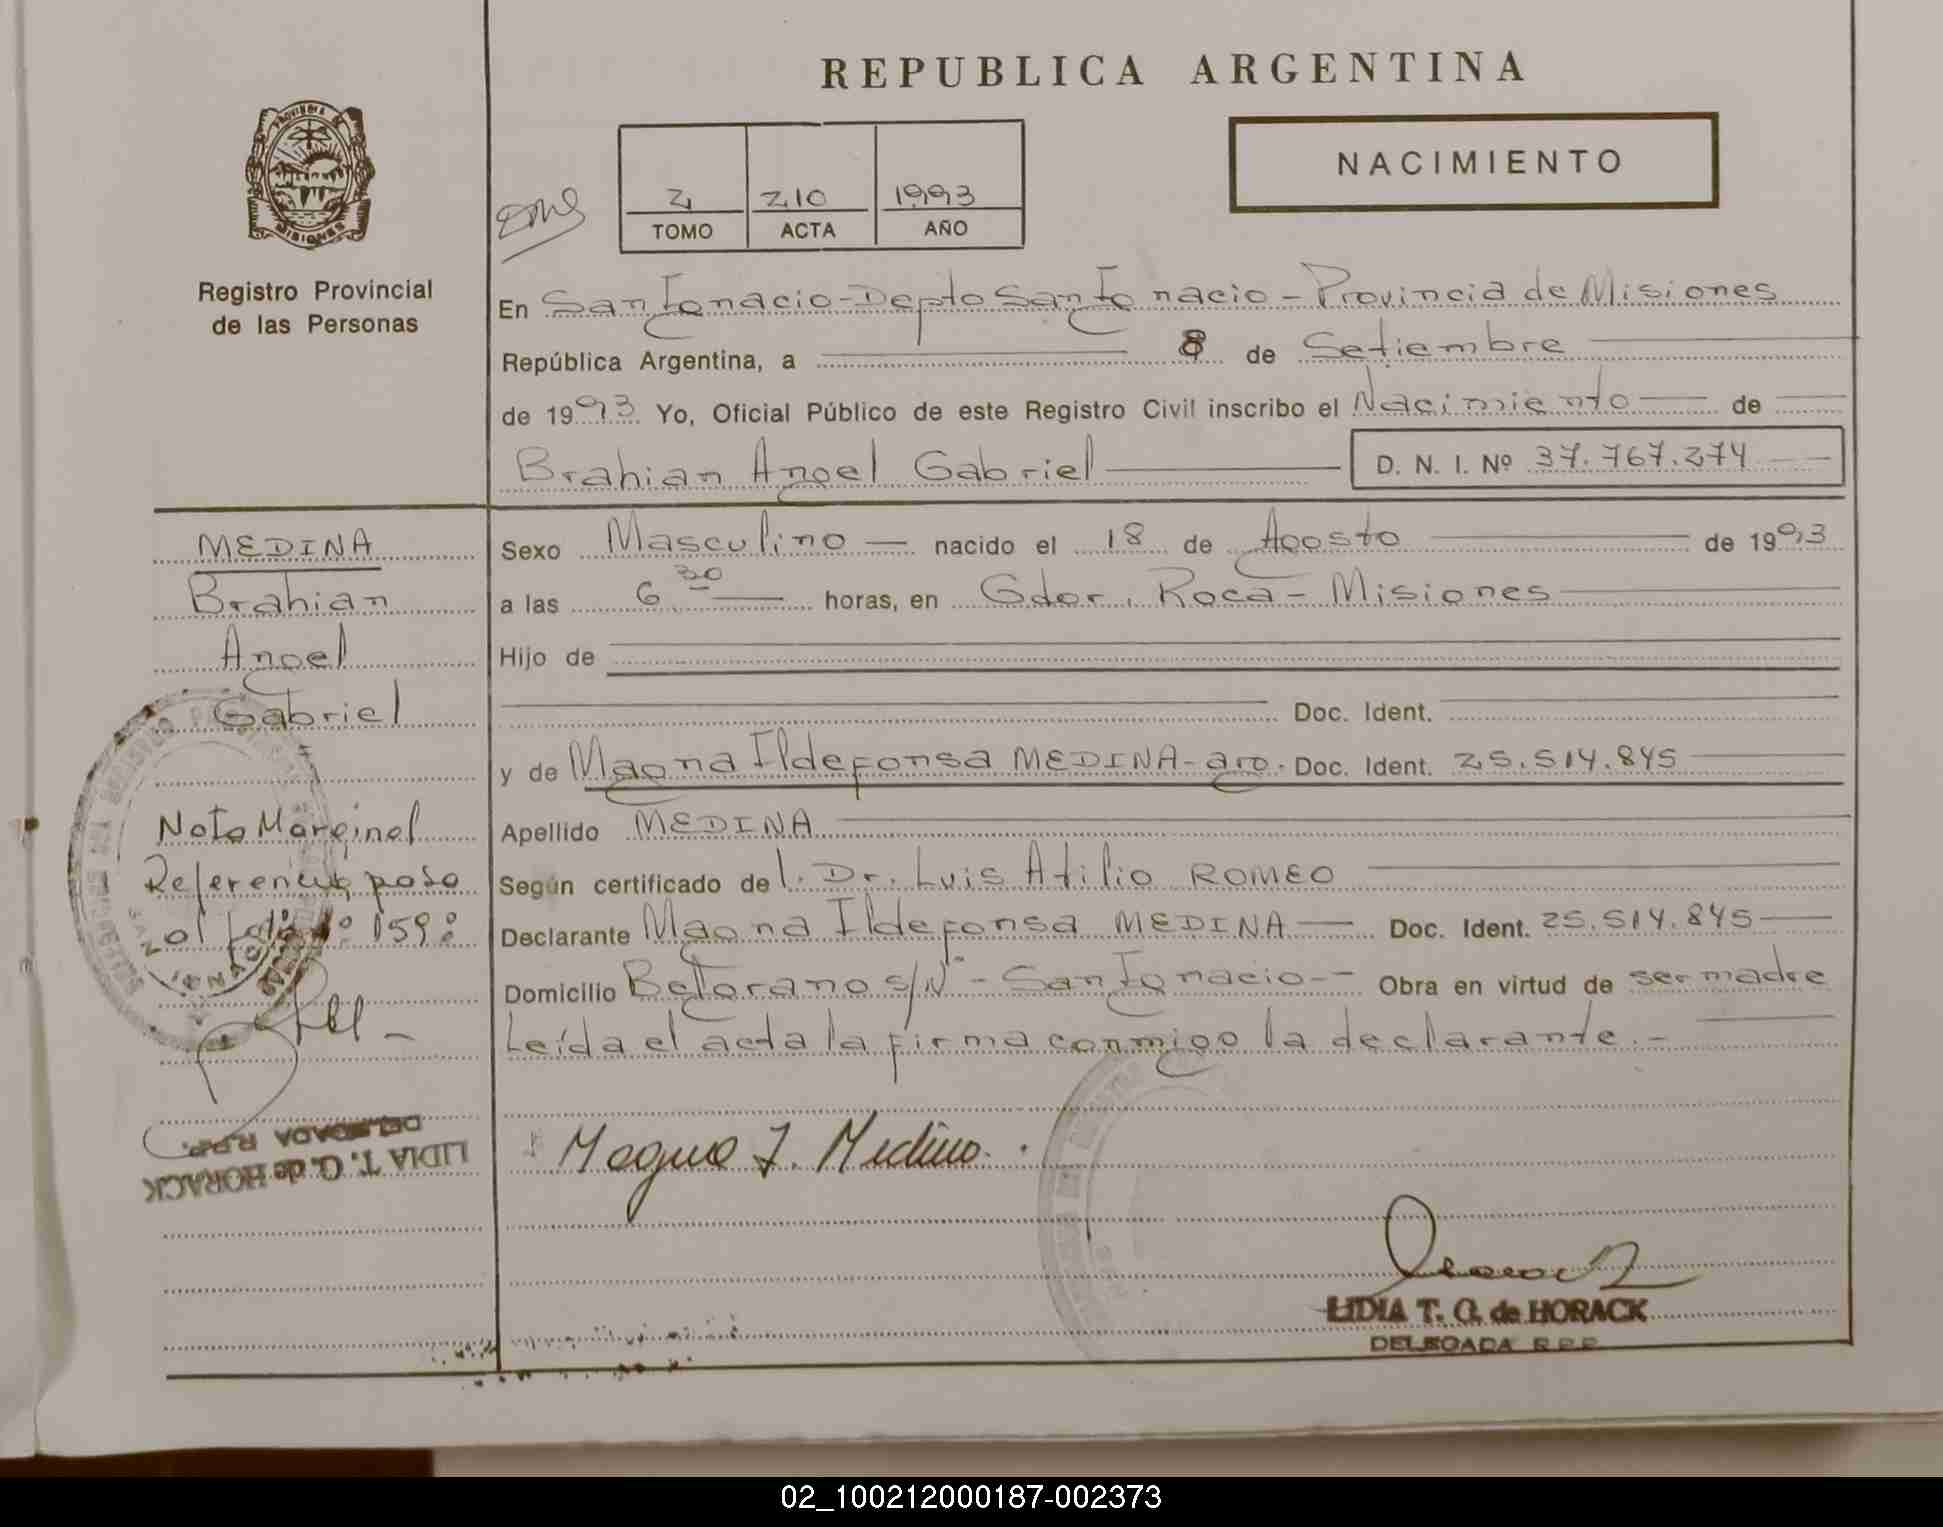 REPUBLICA ARGENTINA
PROVINCIA DE
MISIONES
Registro Provincial
de las Personas
NACIMIENTO
2 210 1993
TOMO ACTA AÑO
En San Ignacio - Depto San Ignacio - Provincia de Misiones
República Argentina, a 8 de Setiembre
de 1993 Yo, Oficial Público de este Registro Civil inscribo el Nacimiento de
Brahian Angel Gabriel D. N. I. Nº 37.767.274
MEDINA
Brahian
Angel
Gabriel
Nota Marginal
Referencia, paso
al folio Nº 159:
LIDIA T. G. de HORACK
DELEGADA R.P.P.
Sexo Masculino nacido el 18 de Agosto de 1993
a las 6.30 horas, en Gdor. Roca - Misiones
Hijo de
Doc. Ident.
y de Magna Ildefonsa MEDINA - arg. Doc. Ident. 25.514.845
Apellido MEDINA
Según certificado del. Dr. Luis Atilio ROMEO
Declarante Magna Ildefonsa MEDINA Doc. Ident. 25.514.845
Domicilio Belgrano s/Nº - San Ignacio - Obra en virtud de ser madre
Leída el acta la firma conmigo la declarante. -
Magna I. Medina.
LIDIA T. G. de HORACK
DELEGADA R.P.P.
02_100212000187-002373